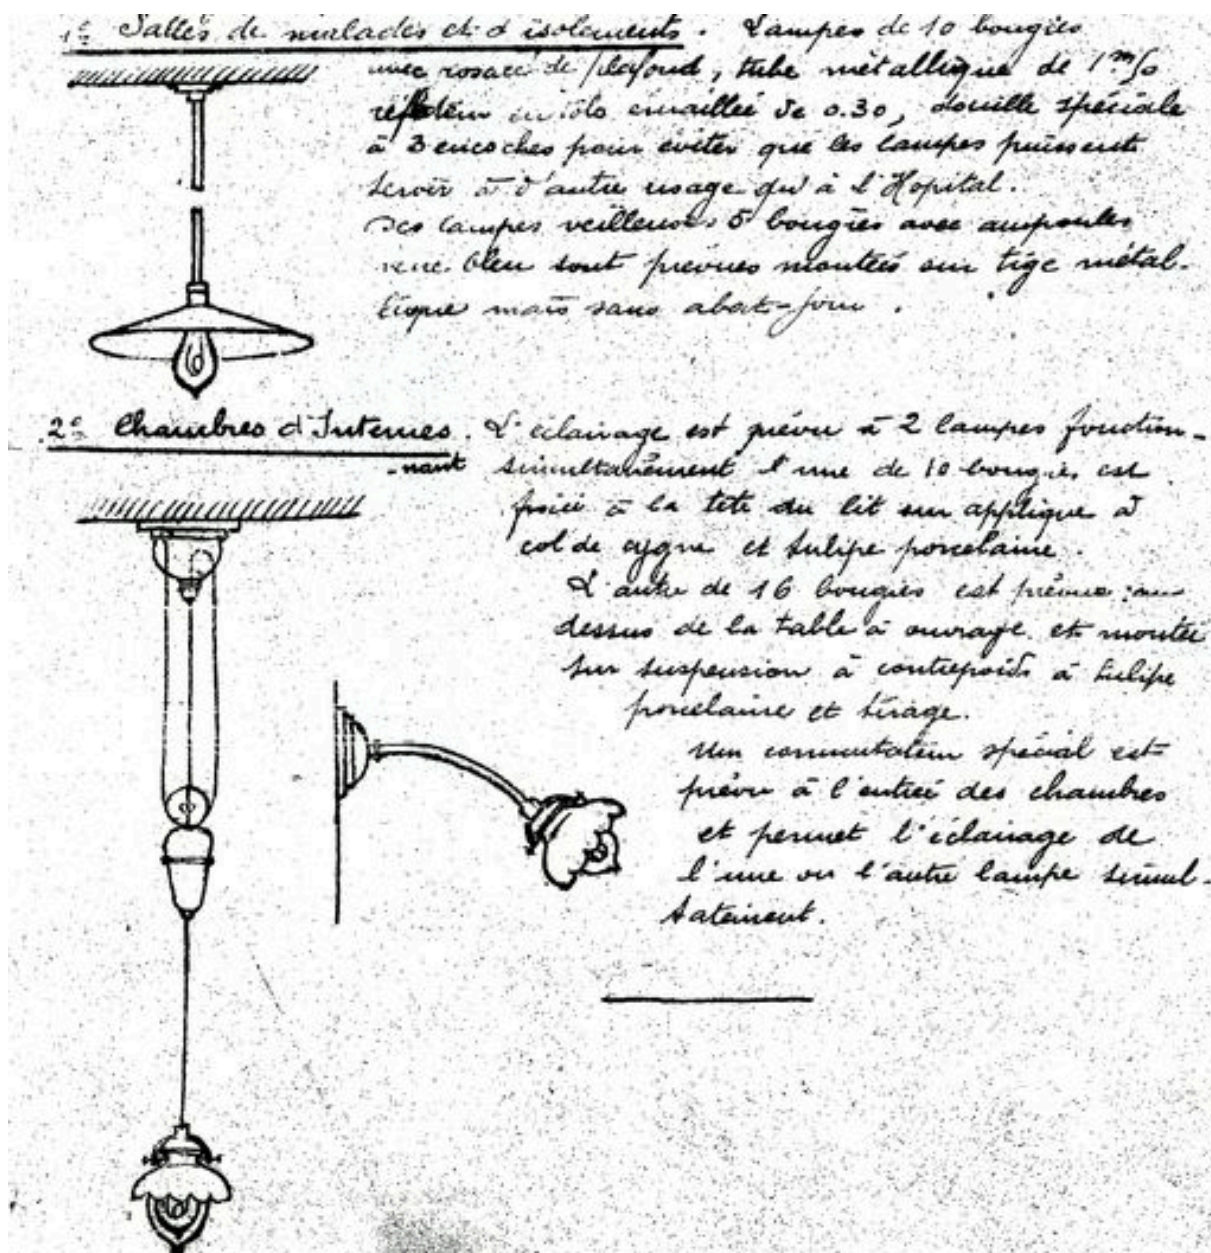 1º Salles de malades et d'isolements. Lampes de 10 bougies
avec rosace de plafond, tube métallique de 1m50
réflecteur en tôle émaillée de 0.30, douille spéciale
à 3 encoches pour éviter que les lampes puissent
servir à d'autre usage qu'à l'Hopital.
Des lampes veilleuses 5 bougies avec ampoules
verre bleu sont prévues montées sur tige métal-
lique mais sans abat-jour.
2º Chambres d'Internes. L'éclairage est prévu à 2 lampes fonction-
-nant simultanément l'une de 10 bougies est
fixée à la tête du lit sur applique à
col de cygne et tulipe porcelaine.
L'autre de 16 bougies est prévue au
dessus de la table à ouvrage et montée
sur suspension à contrepoids à tulipe
porcelaine et tirage.
Un commutateur spécial est
prévu à l'entrée des chambres
et permet l'éclairage de
l'une ou l'autre lampe simul-
tatément.